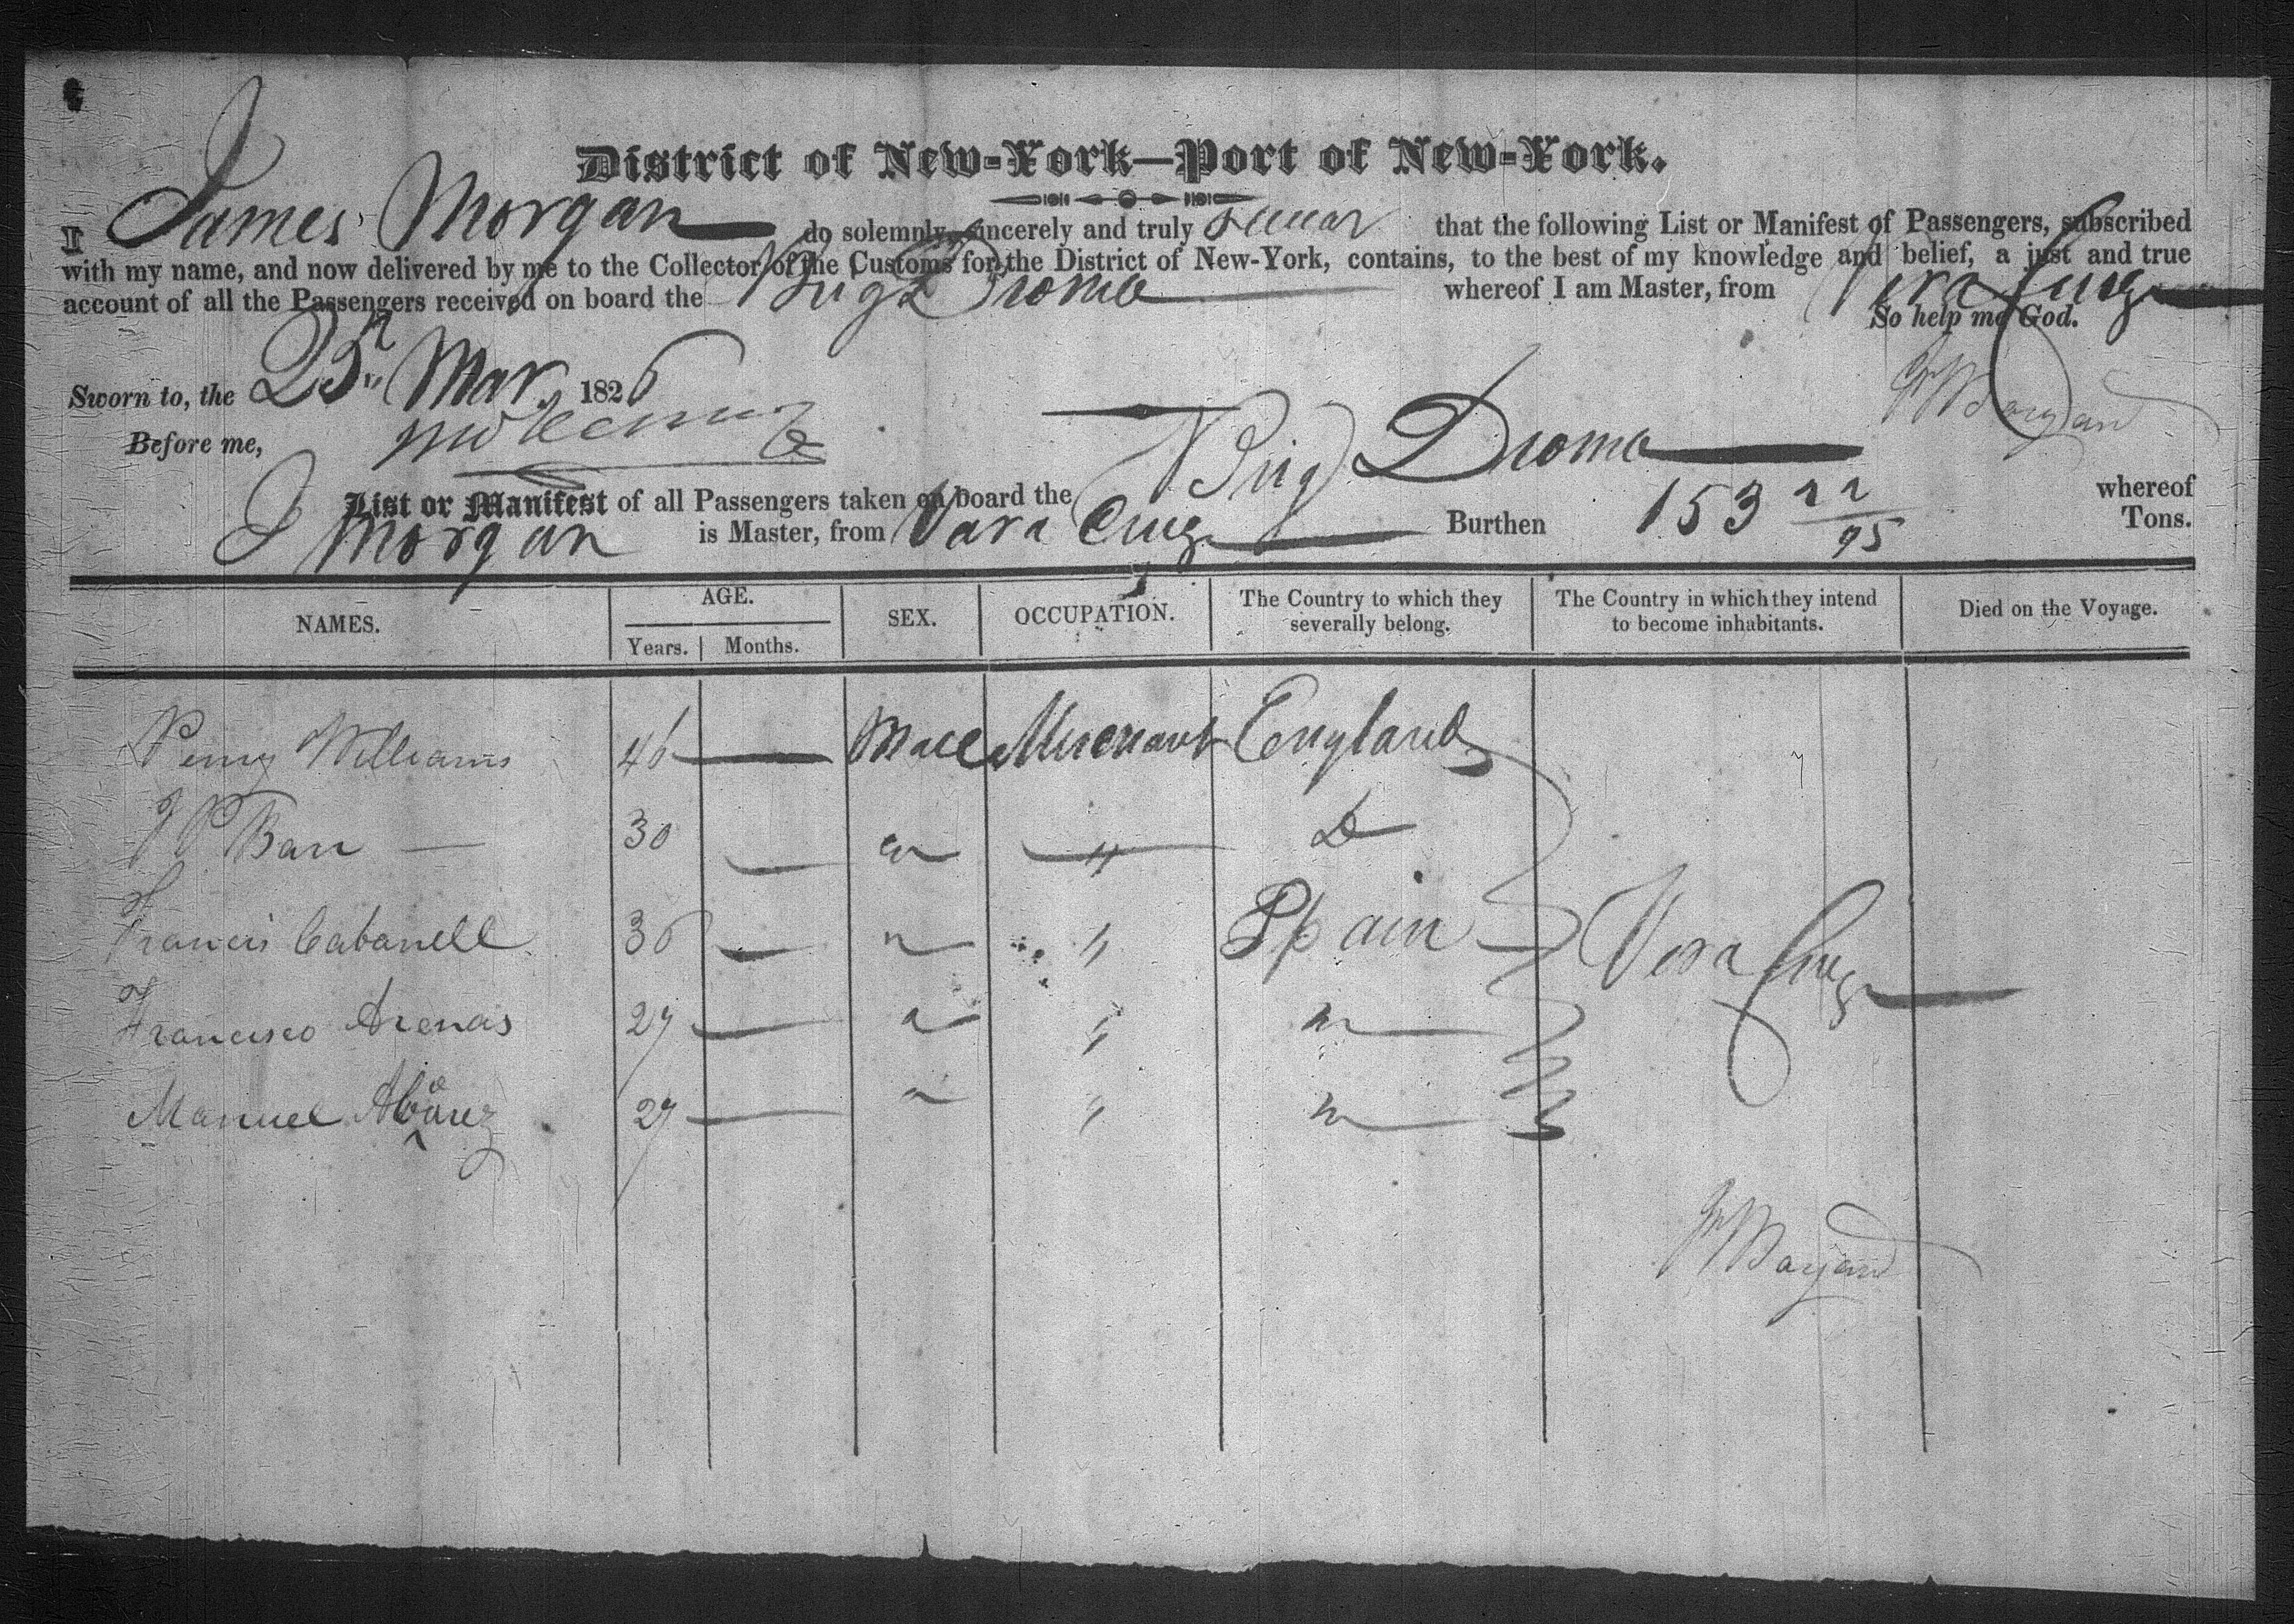 District of New-York—Port of New-York.
I James Morgan do solemnly, sincerely and truly swear that the following List or Manifest of Passengers, subscribed
with my name, and now delivered by me to the Collector of the Customs for the District of New-York, contains, to the best of my knowledge and belief, a just and true
account of all the Passengers received on board the Brig Droma whereof I am Master, from Vera Cruz
So help me God.
Sworn to, the 25th Mar. 1826
Before me,
List or Manifest of all Passengers taken on board the Brig Droma whereof
J Morgan is Master, from Vara Cruz Burthen 153 22/95 Tons.
NAMES. AGE. Years. Months. SEX. OCCUPATION. The Country to which they severally belong. The Country in which they intend to become inhabitants. Died on the Voyage.
Williams 46 — Male Merchant England
J P Barr — 30 — " " Do
Francis Cabanell 36 — " " Spain Vera Cruz
Francisco Arenas 27 — " " "
Manuel 27 — " " "